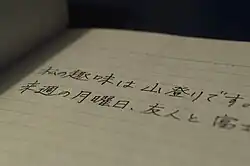 私の趣味は山登りです
来週の月曜日、友人と富士